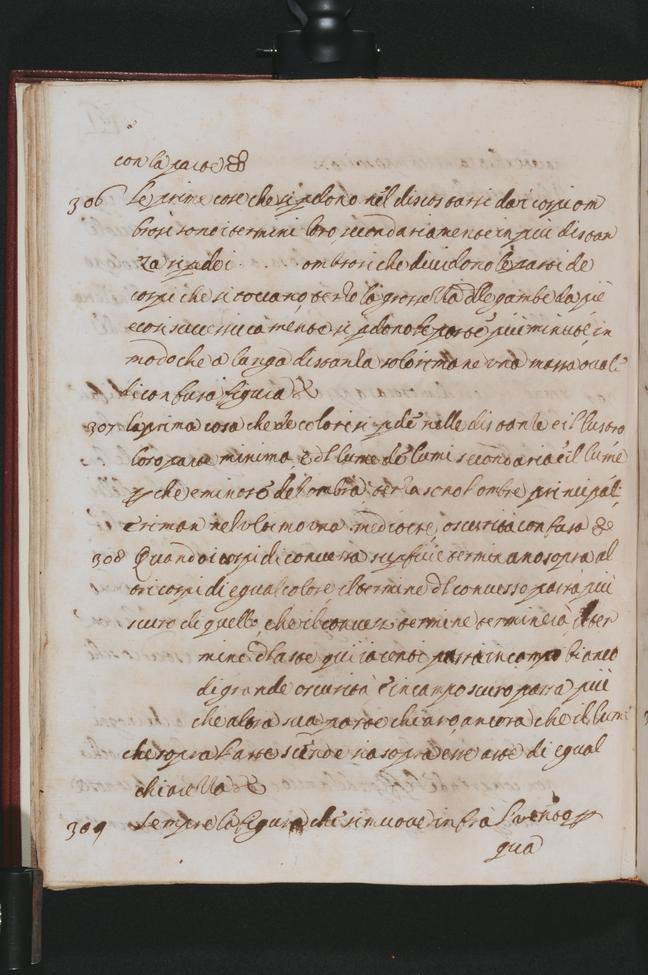 con la parte &
306 Le prime cose che si pdono nel discostarsi da i corpi om
brosi sono i termini loro, secondariamente in piu distan
za si pde i . . . . ombrosi che diuidono le parti de
corpi che si toccano, terzo la grossezza dlle gambe da piè
e cosi successiuamente si pdono le parte piu minute, in
modo che a lunga distanza solo rimane una massa oual
di confusa figura &
307 la prima cosa che de colori si pde nelle distantie è il lustro
loro parte minima, è dl lume de lumi secondaria è il lume
p che è minore de l'ombra, terza sono l'ombre principal
e riman nel ultimo una mediocre, oscurità confusa &
308 Quando i corpi di conuessa supfitie terminano sopra al
tri corpi di egual colore, il termine dl conuesso parra piu
scuro di quello, che il conuesso termine terminerà, il ter
mine dl aste qui iacente parrà in campo bianco
di grande oscurità e in campo scuro parra piu
che altra sua parte chiaro, ancora che il lume
che sopra l'aste scende sia sopra esse aste di egual
chiarezza &
309 sempre la figura che si muoue infra l'uento p
qua